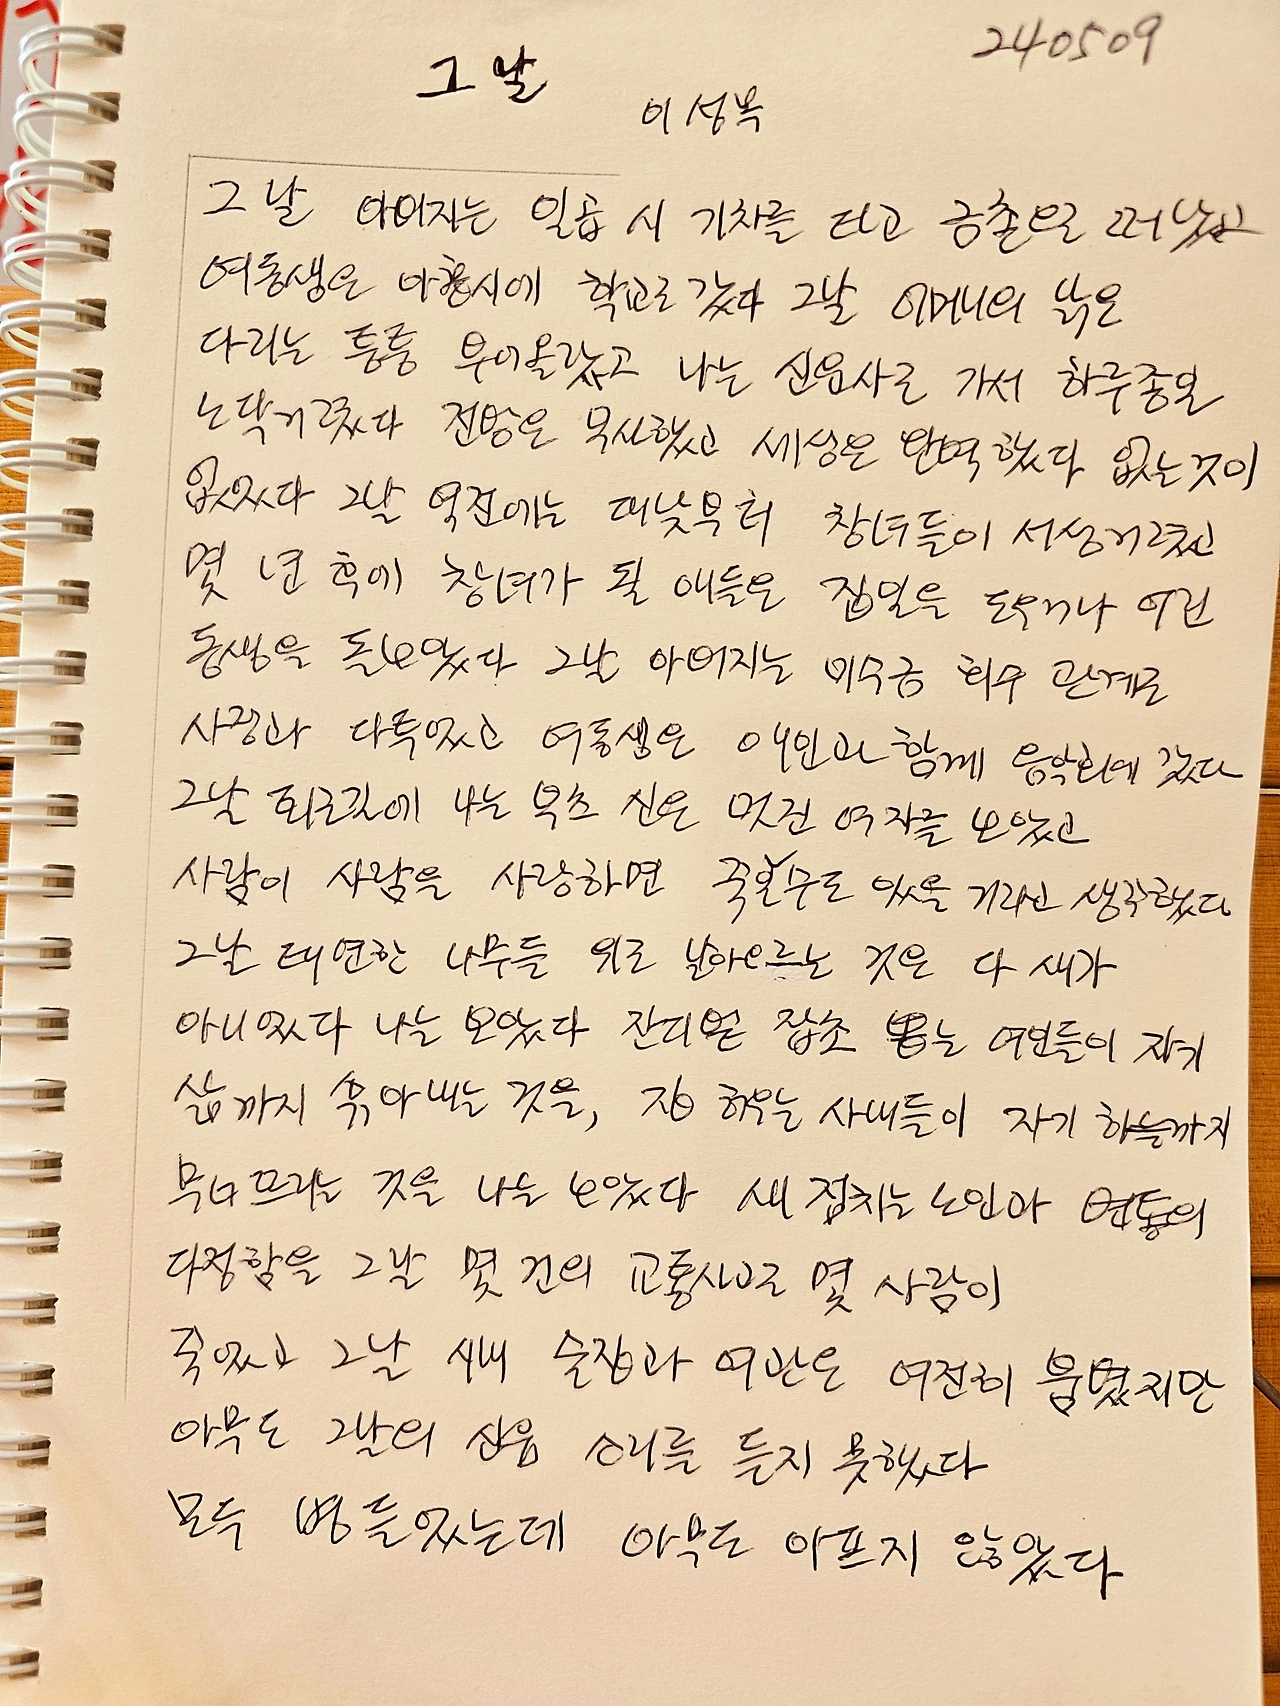 240509
그 날
이성복
그 날 아버지는 일곱 시 기차를 타고 금촌으로 떠났고
여동생은 아홉시에 학교로 갔다 그날 어머니의 낡은
다리는 퉁퉁 부어올랐고 나는 신문사로 가서 하루종일
노닥거렸다 전방은 무사했고 세상은 완벽했다 없는것이
없었다 그날 역전에는 대낮부터 창녀들이 서성거렸고
몇 년 후에 창녀가 될 애들은 집일을 도우거나 어린
동생을 돌보았다 그날 아버지는 미수금 회수 관계로
사장과 다투었고 여동생은 애인과 함께 음악회에 갔다
그날 퇴근길에 나는 부츠 신은 멋진 여자를 보았고
사람이 사람을 사랑하면 죽일 수도 있을 거라고 생각했다
그날 태연한 나무들 위로 날아오르는 것은 다 새가
아니었다 나는 보았다 잔디밭 잡초 뽑는 여인들이 자기
삶까지 솎아내는 것을, 집 허무는 사내들이 자기 하늘까지
무너뜨리는 것을 나는 보았다 새 점치는 노인과 변통의
다정함을 그날 몇 건의 교통사고로 몇 사람이
죽었고 그날 시내 술집과 여관은 여전히 붐볐지만
아무도 그날의 신음 소리를 듣지 못했다
모두 병들었는데 아무도 아프지 않았다